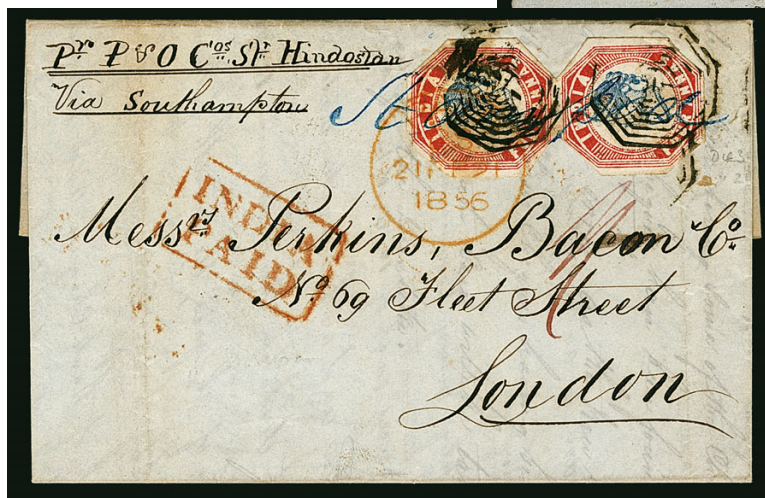 Pr P & O Cos. Str. Hindostan
Via Southampton
INDIA
INDIA
1856
INDIA
PAID
Messrs Perkins, Bacon & Co.
No 69 Fleet Street
London